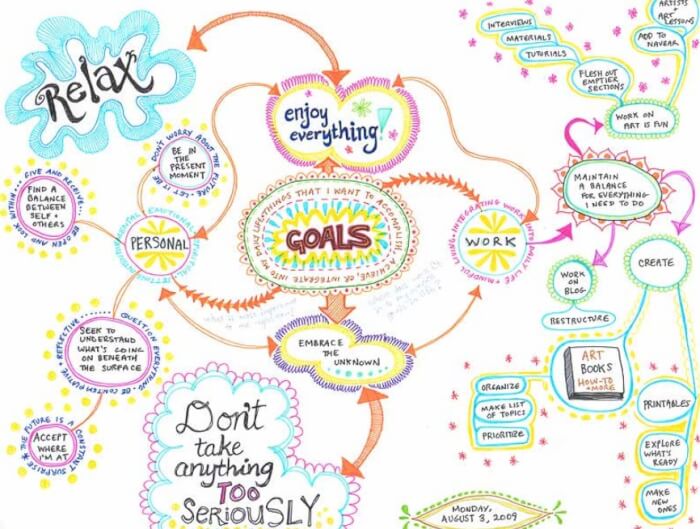 Relax
enjoy
everything!
INTERVIEWS
MATERIALS
TUTORIALS
FLESH OUT
EMPTIER
SECTIONS
ARTISTS
+
ART
LESSONS
ADD TO
NAVBAR
WORK ON
ART IS FUN
MAINTAIN
A BALANCE
FOR EVERYTHING
I NEED TO DO
DON'T WORRY ABOUT THE FUTURE • LET IT BE
BE IN
THE
PRESENT
MOMENT
GIVE AND RECEIVE... BE OPEN AND LOOK WITHIN...
FIND A
BALANCE
BETWEEN
SELF +
OTHERS
EMOTIONAL
PERSONAL
THINGS THAT I WANT TO ACCOMPLISH, ACHIEVE, OR INTEGRATE INTO MY DAILY LIFE
GOALS
MINDFUL LIVING • INTEGRATING WORK INTO DAILY LIFE
WORK
WORK
ON
BLOG
RESTRUCTURE
CREATE
EMBRACE
THE
UNKNOWN
QUESTION EVERYTHING • BE CONTEMPLATIVE + REFLECTIVE
SEEK TO
UNDERSTAND
WHAT'S GOING
ON BENEATH
THE SURFACE
THE FUTURE IS A CONSTANT SURPRISE
ACCEPT
WHERE
I'M AT
ART
BOOKS
HOW-TO
+ MORE
ORGANIZE
MAKE LIST
OF TOPICS
PRIORITIZE
PRINTABLES
EXPLORE
WHAT'S
READY
MAKE
NEW
ONES
Don't
take
anything
TOO
SERIOUSLY
MONDAY,
AUGUST 3, 2009